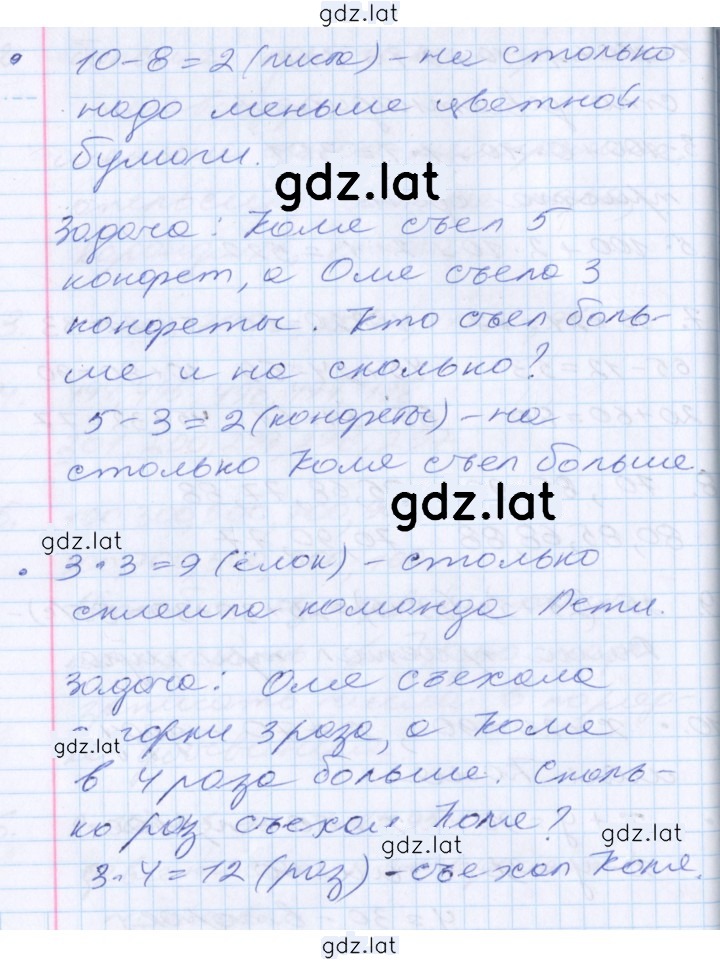 gdz.lat
10-8=2 (листа) - на столько
надо меньше цветной
бумаги.
gdz.lat
Задача: Коля съел 5
конфет, а Оля съела 3
конфеты. Кто съел боль-
ше и на сколько?
5-3=2 (конфеты) - на
столько Коля съел больше.
gdz.lat
gdz.lat
3·3=9 (ёлок) - столько
склеила команда Пети.
Задача: Оля съехала
с горки 3 раза, а Коля
gdz.lat
в 4 раза больше. Сколь-
ко раз съехал Коля?
gdz.lat
gdz.lat
3·4=12 (раз) - съехал Коля.
gdz.lat